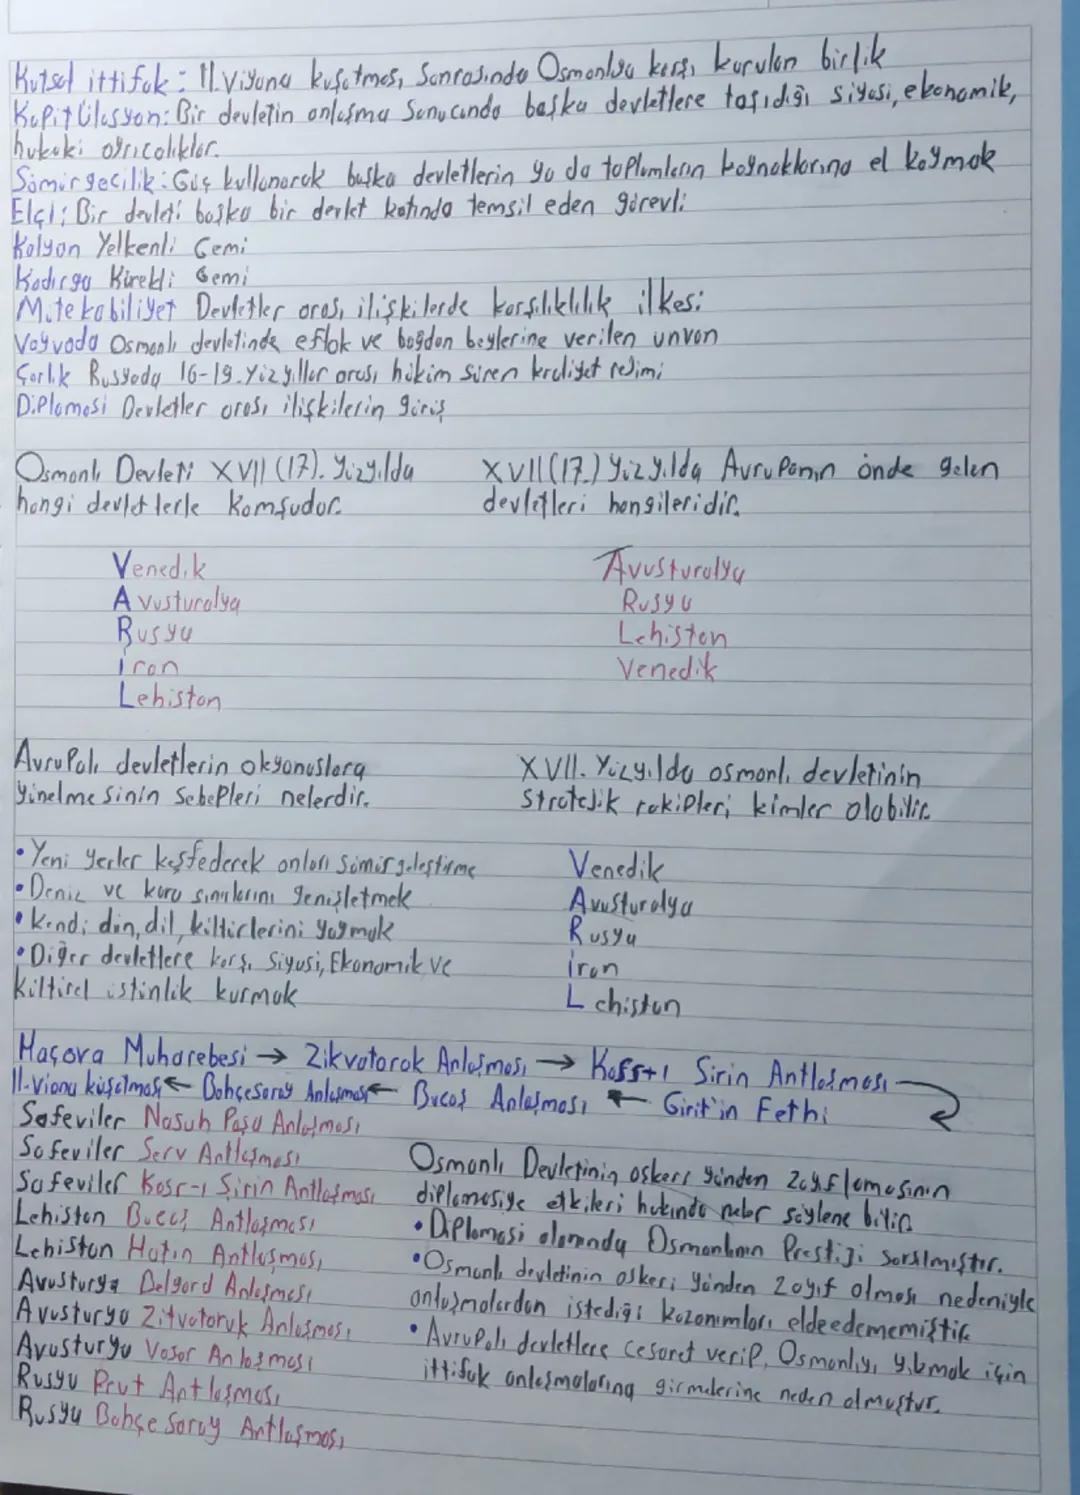 Kutsal ittifak: II. Viyana kuşatması Sonrasında Osmanlıya karşı kurulan birlik
Kapitülasyon: Bir devletin anlaşma Sonucunda başka devletlere taşıdığı siyasi, ekonomik,
hukuki ayrıcalıklar.
Sömürgecilik: Güç kullanarak başka devletlerin ya da toplumların kaynaklarına el koymak
Elçi: Bir devleti başka bir devlet katında temsil eden görevli
Kalyon Yelkenli Gemi
Kadırga Kürekli Gemi
Mütekabiliyet Devletler arası ilişkilerde karşılıklılık ilkesi
Voyvoda Osmanlı devletinde eflak ve boğdan beylerine verilen unvan
Çarlık Rusyada 16-19. Yüzyıllar arası hüküm süren krallıyet rejimi
Diplomasi Devletler arası ilişkilerin giriş
Osmanlı Devleti XVII (17). Yüzyılda
hangi devletlerle komşudur.
Venedik
Avusturalya
Rusya
İran
Lehistan
XVII (17.) Yüzyılda Avrupanın önde gelen
devletleri hangileridir.
Avusturalya
Rusya
Lehistan
Venedik
Avrupalı devletlerin okyanuslara
yönelmesinin Sebepleri nelerdir.
• Yeni yerler keşfederek onları sömürgeleştirme
• Deniz ve kara sınırlarını genişletmek
• Kendi din, dil, kültürlerini yaymak
• Diğer devletlere karşı Siyasi, Ekonomik ve
kültürel üstünlük kurmak
XVII. Yüzyılda osmanlı devletinin
stratejik rakipleri kimler olabilir.
Venedik
Avusturalya
Rusya
İran
Lehistan
Haçova Muharebesi → Zitvatorok Anlaşması → Kasr+ı Şirin Antlaşması
II. Viana kuşatması ← Bahçesaray Anlaşması ← Bucaş Anlaşması ← Girit'in Fethi
Safeviler Nasuh Paşa Anlaşması
Safeviler Serv Antlaşması
Safeviler Kasr-ı Şirin Antlaşması
Lehistan Bucaş Antlaşması
Lehistan Hotin Antlaşması
Avusturya Belgard Anlaşması
Avusturya Zitvatoruk Anlaşması
Avusturya Vasar Anlaşması
Rusya Prut Antlaşması
Rusya Bahçe Saray Antlaşması
Osmanlı Devletinin askeri yönden Zayıflamasının
diplomasiye etkileri hakında neler söylene bilir
• Diplomasi alanında Osmanlının Prestiji sarsılmıştır.
• Osmanlı devletinin askeri yönden zayıf olması nedeniyle
antlaşmalardan istediği kazanımları eldeedememiştir
• Avrupalı devletlere cesaret verip, Osmanlıyı yıkmak için
ittifak anlaşmalarına girmelerine neden olmuştur.